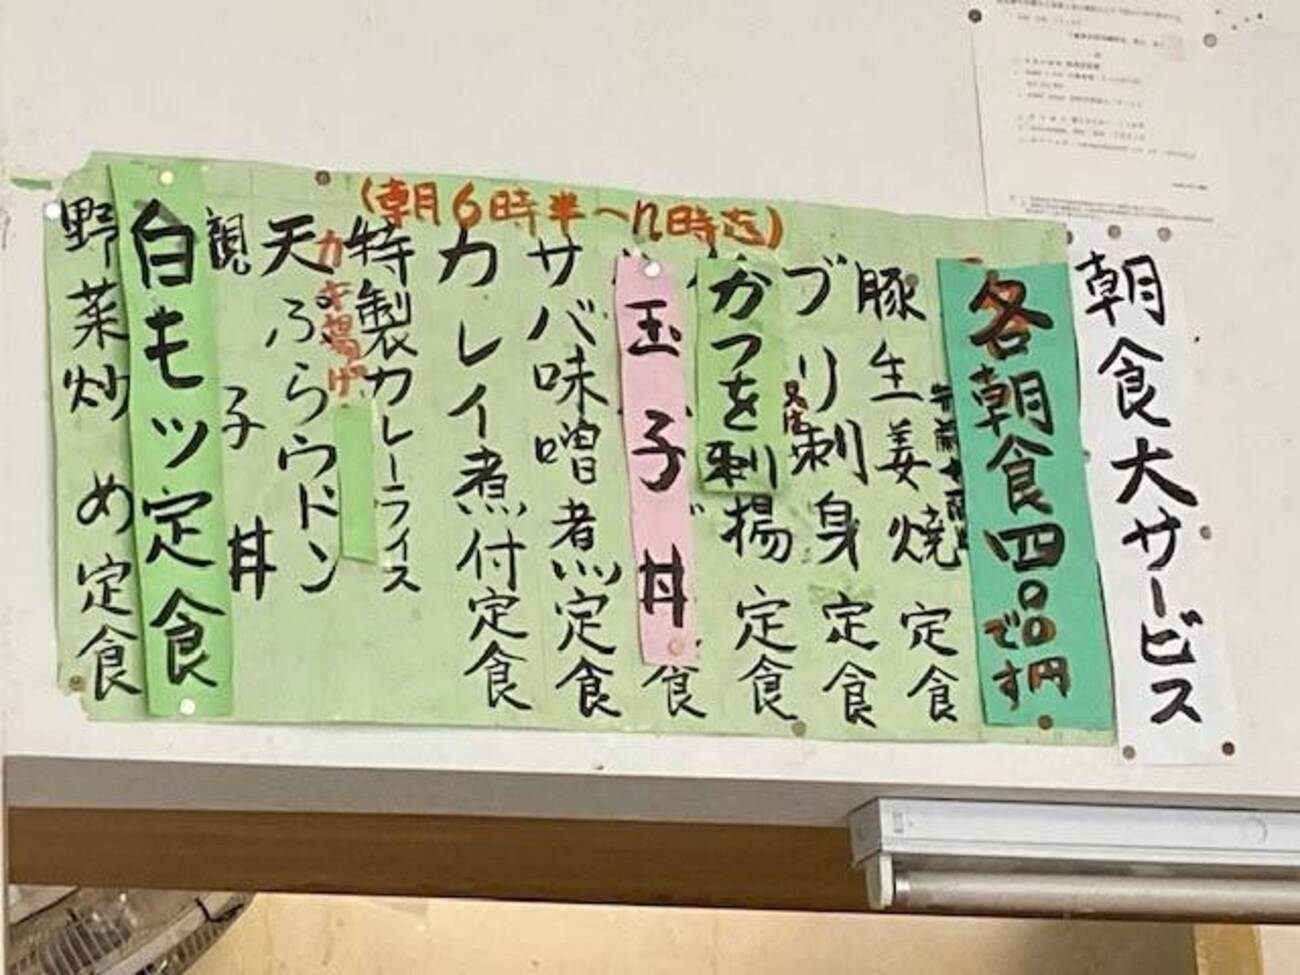 朝食大サービス
各朝食四〇〇円
です
(朝6時半~11時迄)
豚生姜焼定食
ブリ刺身定食
かつを刺
揚定食
玉子丼
食
サバ味噌煮定食
カレイ煮付定食
特製カレーライス
カキ揚げ
天ぷらウドン
親子丼
白モツ定食
野菜炒め定食